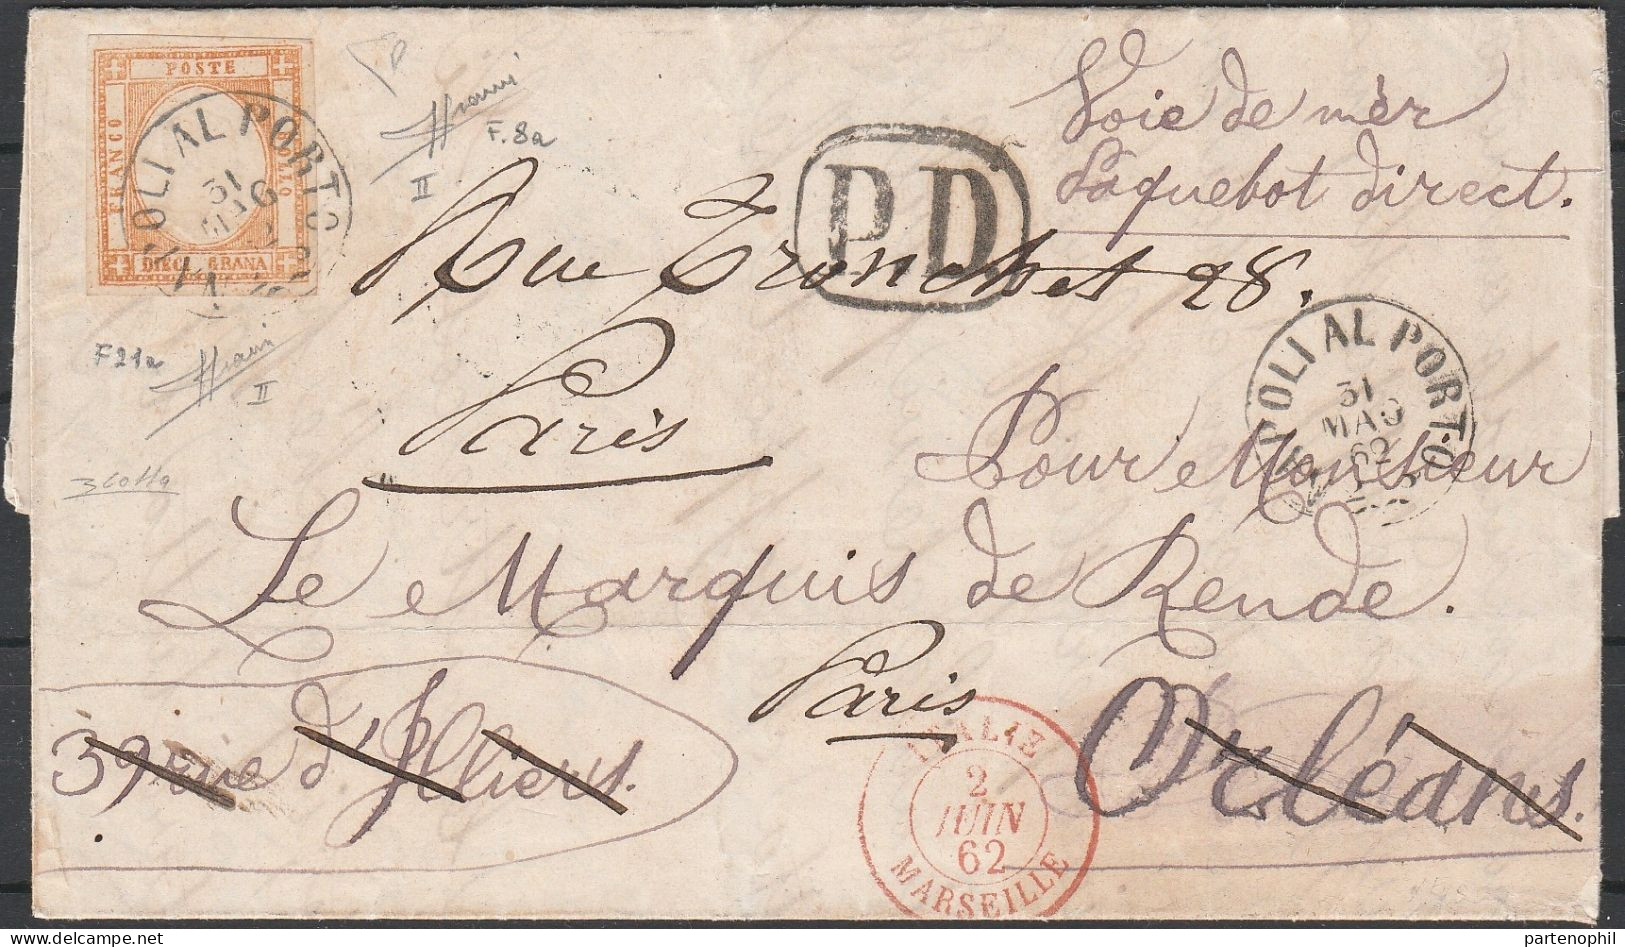 POSTE
FRANCO
OTTO
DIECI GRANA
NAPOLI AL PORTO
31
MAG
F.8a
II
F21a
II
P.D
Voie de mèr
Paquebot direct.
Rue Tronchet 28.
Paris
POLI AL PORTO
31
MAG
62
Pour Monsieur
Le Marquis de Rende.
Paris
39 rue d'Illiers.
Orléans.
ITALIE
2
JUIN
62
MARSEILLE
partenophil